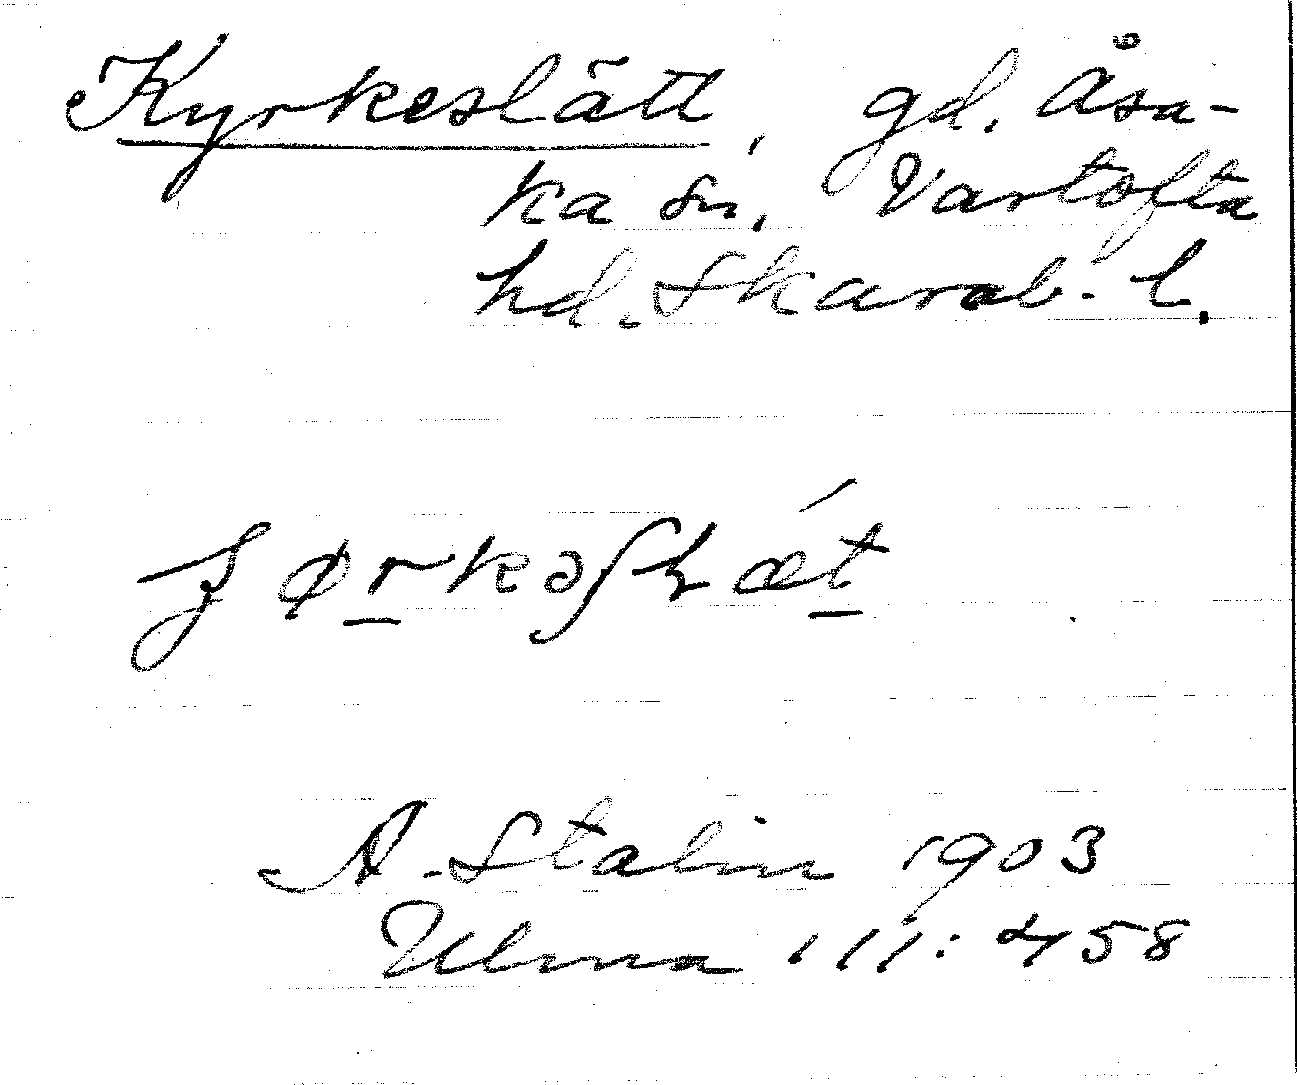 Kyrkeslätt, gd. Åsa-
ka sn, Vartofta
hd. Skarab. l.
A. Stalin 1903
Ulma 111:458